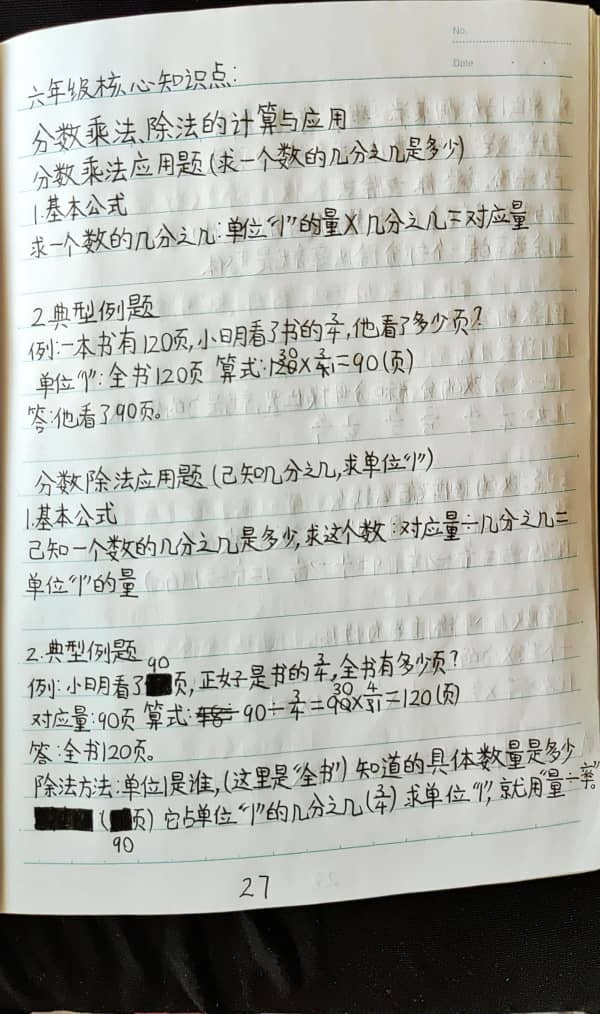 No.
Date
六年级核心知识点:
分数乘法、除法的计算与应用
分数乘法应用题(求一个数的几分之几是多少)
1.基本公式
求一个数的几分之几:单位“1”的量×几分之几=对应量
2.典型例题
例:一本书有120页,小明看了书的3/4,他看了多少页?
单位“1”:全书120页 算式:120×3/4=90(页)
答:他看了90页。
分数除法应用题(已知几分之几,求单位“1”)
1.基本公式
已知一个数的几分之几是多少,求这个数:对应量÷几分之几=
单位“1”的量
2.典型例题
例:小明看了90页,正好是书的3/4,全书有多少页?
对应量:90页 算式:90÷3/4=90×4/3=120(页)
答:全书120页。
除法方法:单位1是谁,(这里是“全书”)知道的具体数量是多少
(90页)它占单位“1”的几分之几(3/4)求单位“1”,就用“量÷率”。
27